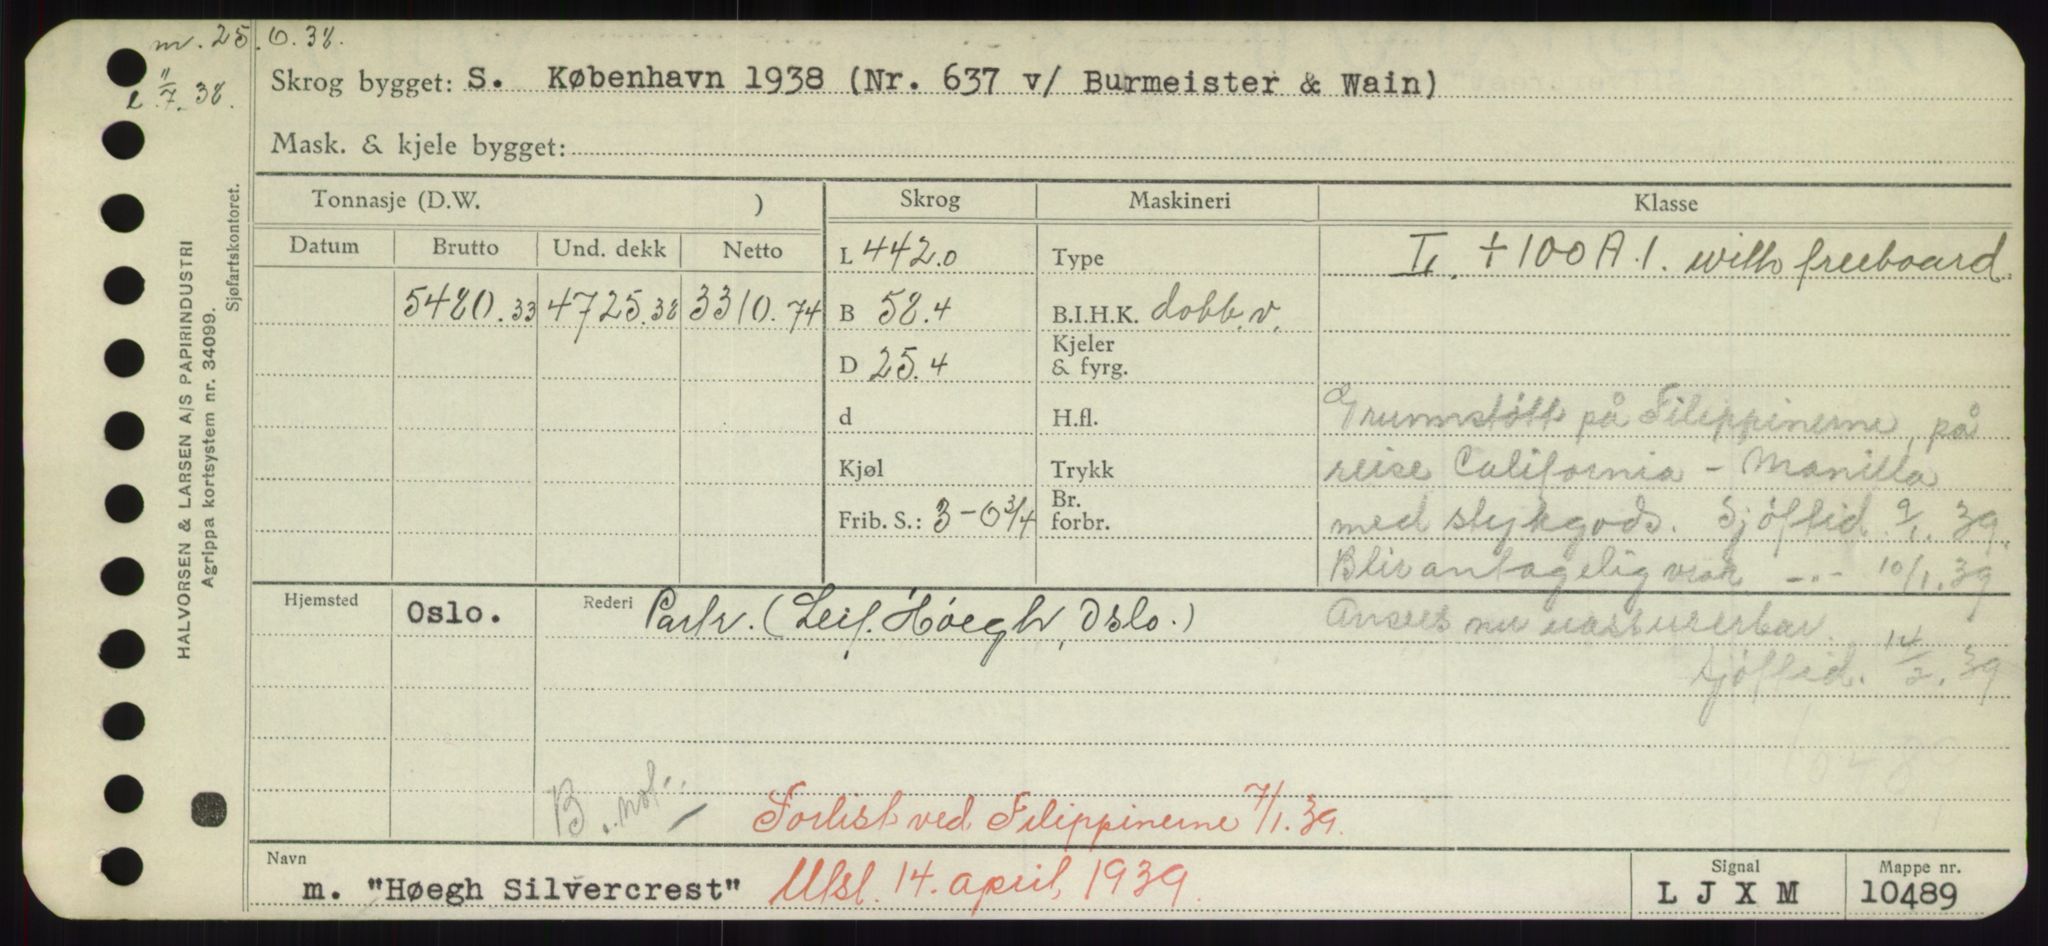 m. 25.6.38.
L. 11/7. 38.
Skrog bygget: S. København 1938 (Nr. 637 v/ Burmeister & Wain)
Mask. & kjele bygget:
Tonnasje (D.W. )
Skrog
Maskineri
Klasse
Datum
Brutto
Und. dekk
Netto
L 442.0
Type
L. + 100 A.1. with freeboard.
5480.33
4725.38
3310.74
B 58.4
B.I.H.K. dobb.v.
D 25.4
Kjeler
& fyrg.
d
H.fl.
Grunnstött på Filippinerne, på
Kjøl
Trykk
reise California - Manilla
Frib. S.: 3-0 3/4
Br.
forbr.
med stykgods. Sjöftid. 9/1. 39.
Blir antagelig vrak -"- 10/1. 39
Hjemsted
Oslo.
Rederi
Partr. (Leif. Höegh, Oslo.)
Ansees nu uassurerbar.
Sjöftid. 14/2. 39
10489
B. not.
Forlist ved Filippinerne 7/1. 39.
Navn
m. "Høegh Silvercrest"
Utsl. 14. april, 1939.
Signal
L J X M
Mappe nr.
10489
HALVORSEN & LARSEN A/S PAPIRINDUSTRI
Agrippa kortsystem nr. 34099.
Sjøfartskontoret.